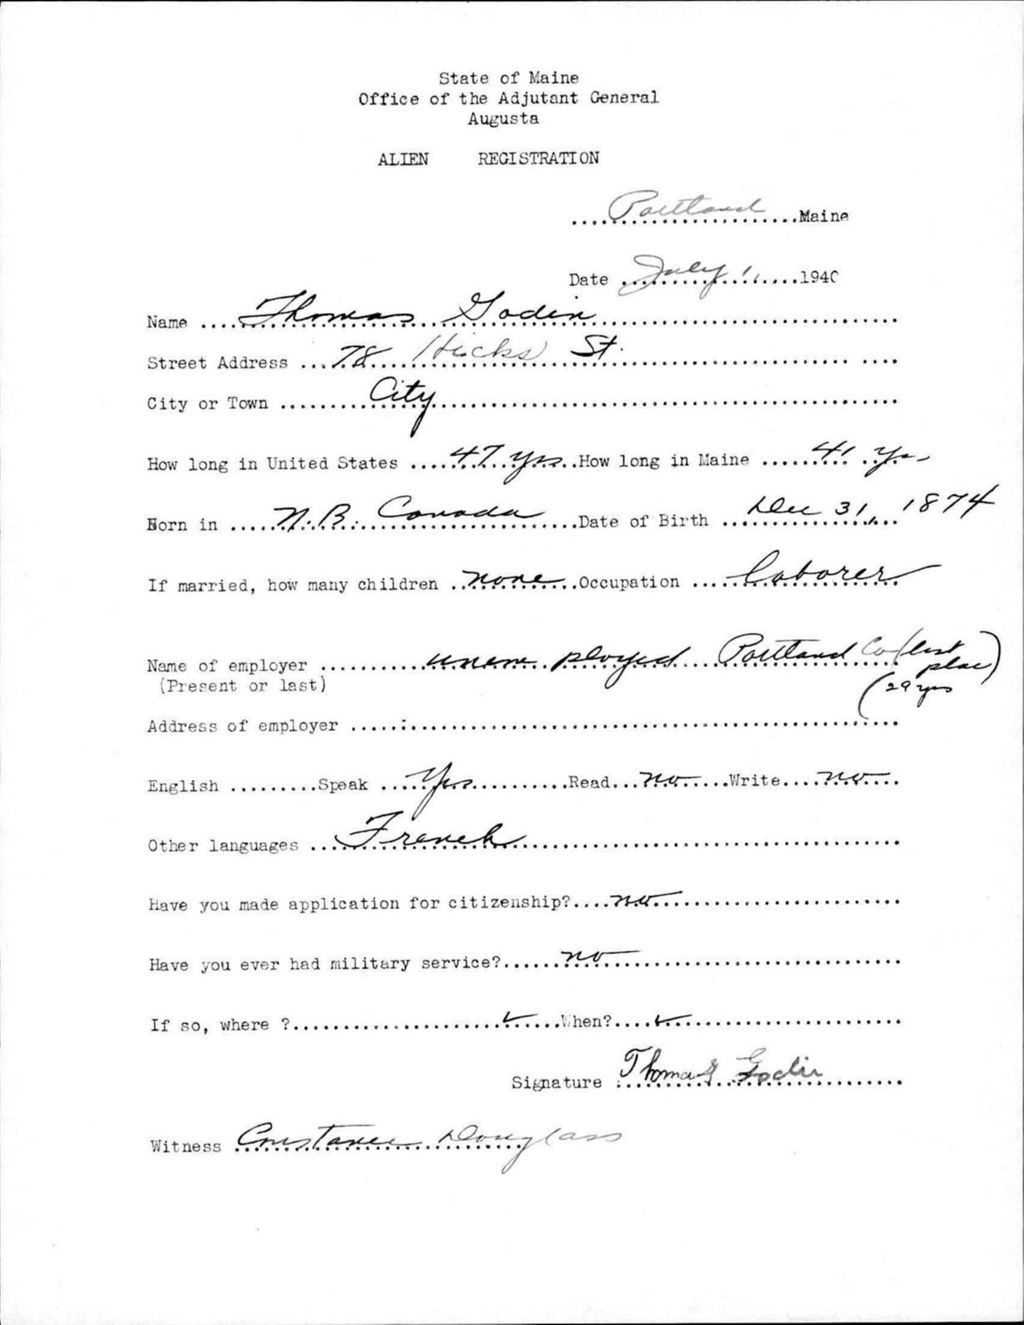 State of Maine
Office of the Adjutant General
Augusta
ALIEN REGISTRATION
....Portland....Maine
Date ....July 1,....1940
Name ....Thomas Godin....
Street Address ...78 Hicks St.....
City or Town ....City....
How long in United States ....47 yrs...How long in Maine ....41 yrs
Born in ....N.B. Canada....Date of Birth ....Dec 31, 1874
If married, how many children ..none...Occupation ....Laborer
Name of employer ....unemployed....Portland Co (last place)
(Present or last) (29 yrs
Address of employer ....
English .........Speak ....Yes....Read...no....Write....no....
Other languages ...French....
Have you made application for citizenship?....no....
Have you ever had military service?......no....
If so, where ?....✓....When?....✓....
Signature ....Thomas Godin....
Witness Constance Douglass